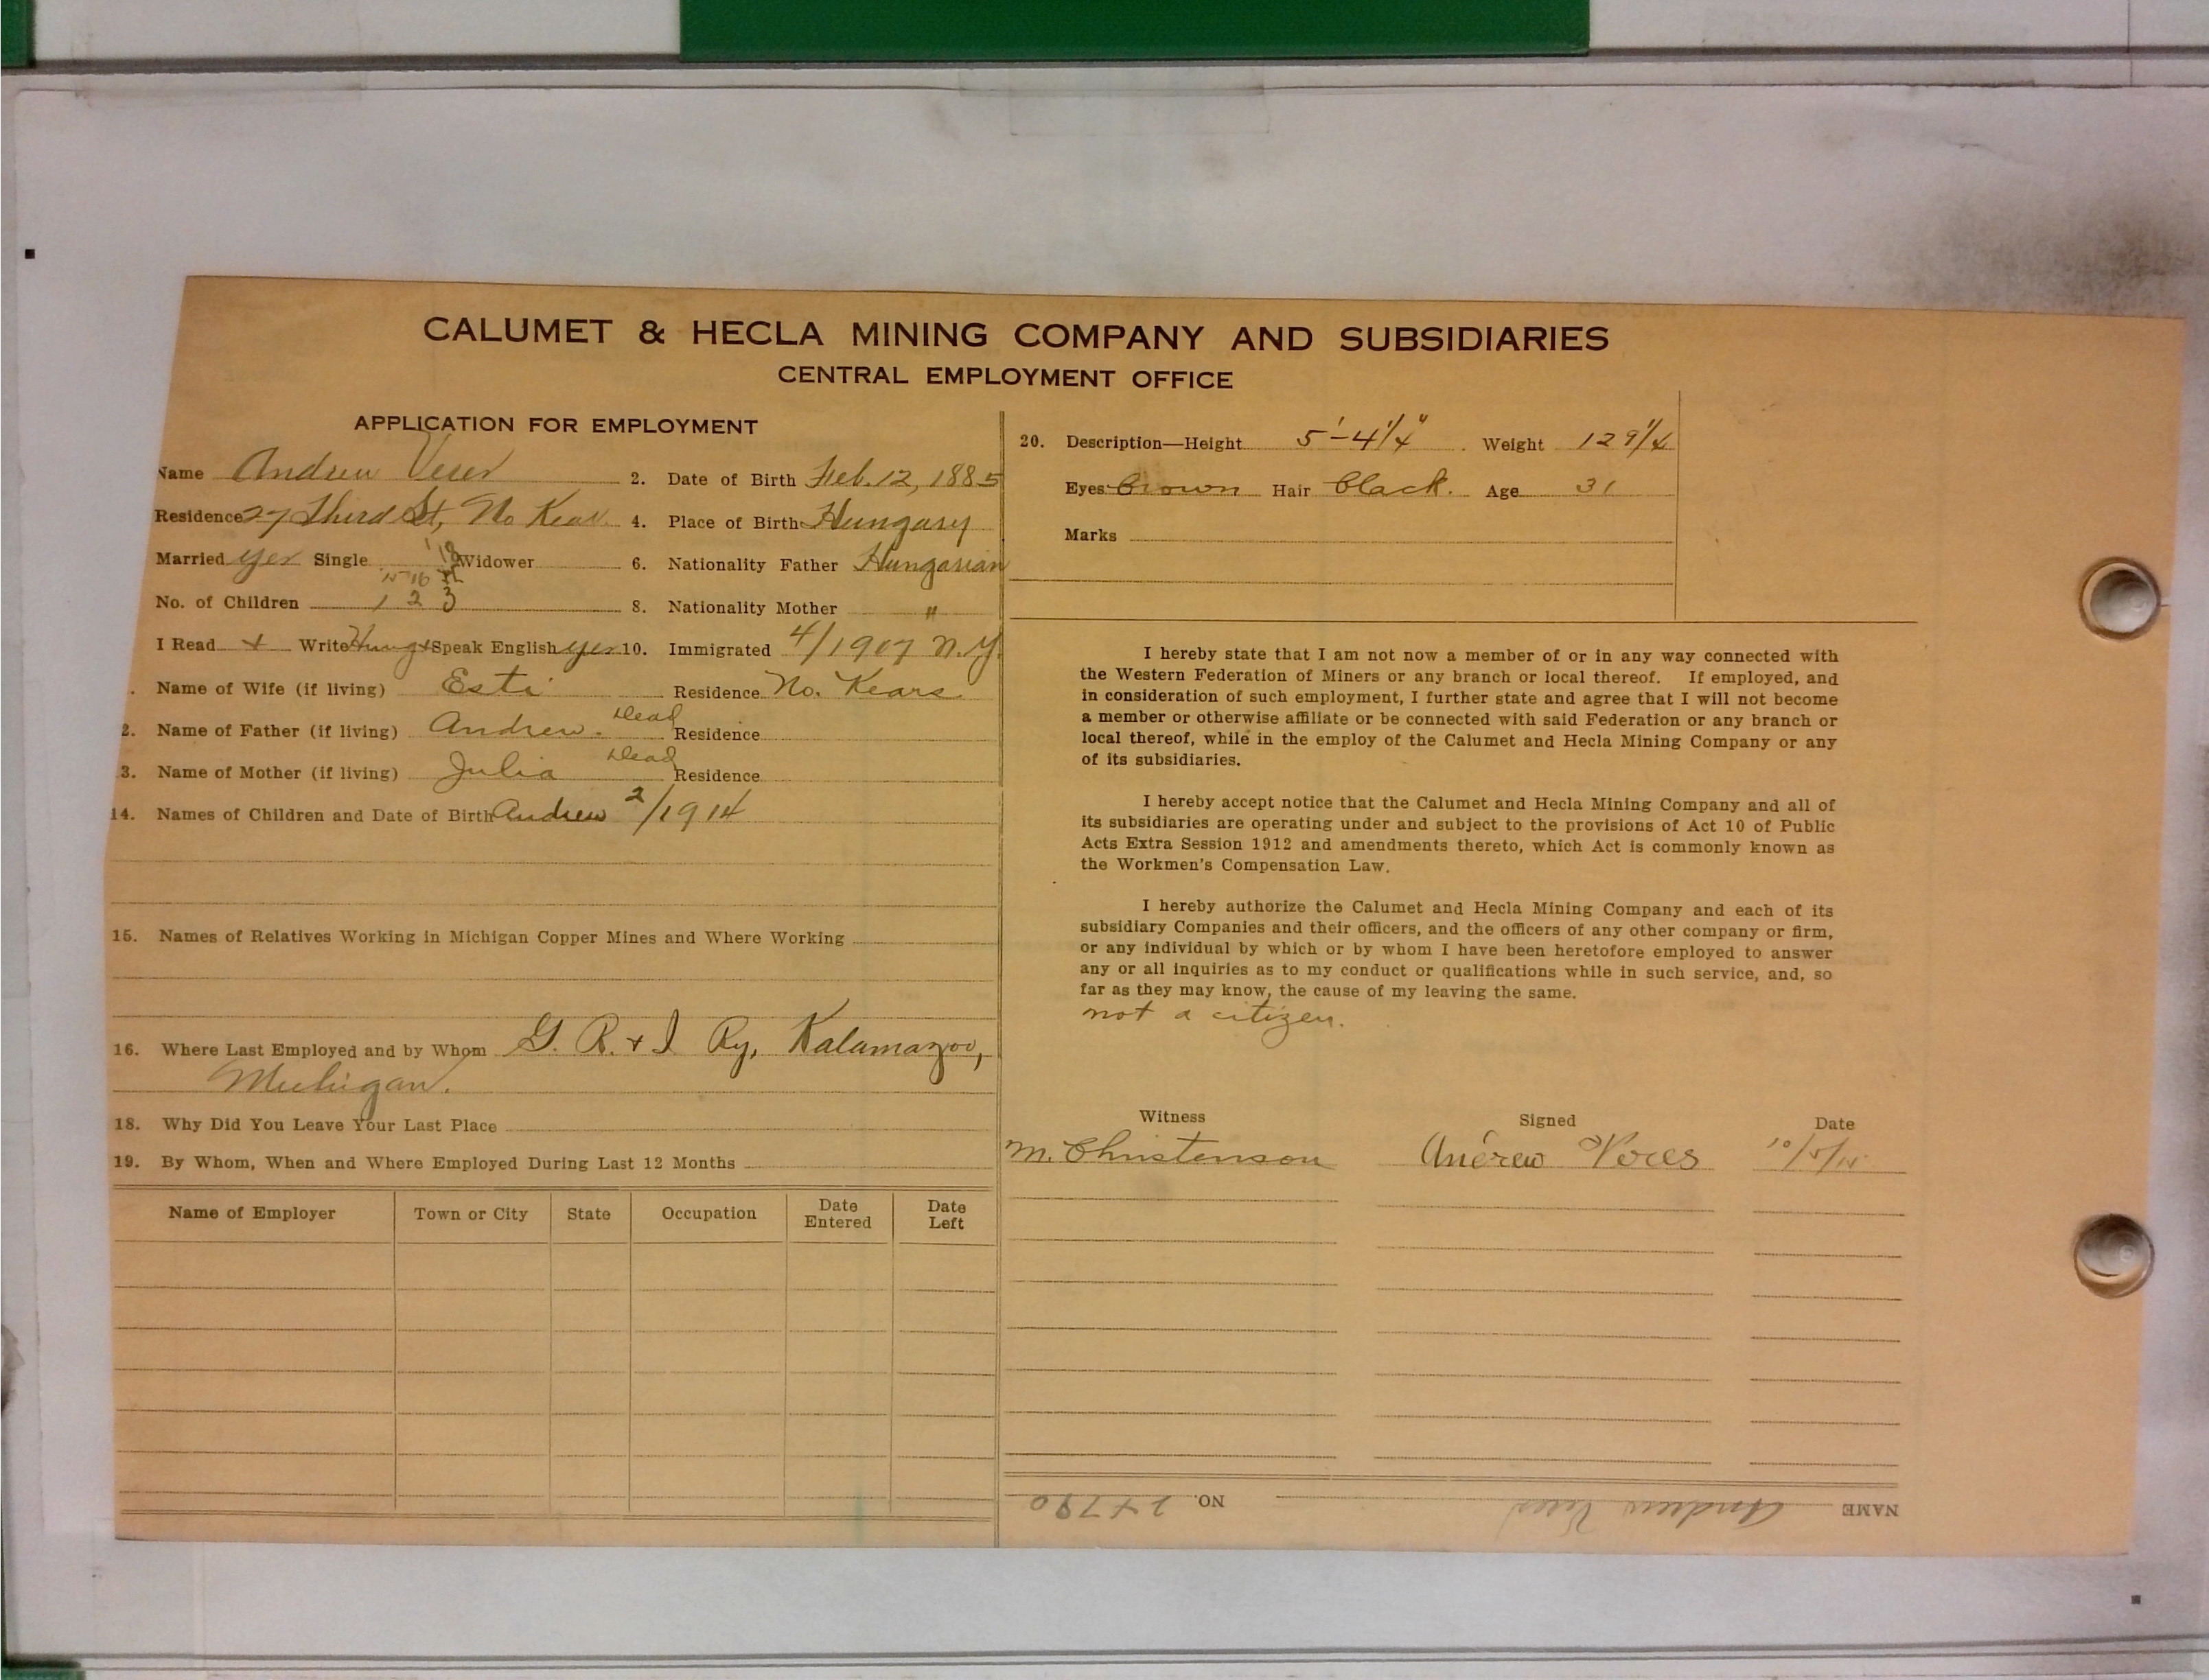 CALUMET & HECLA MINING COMPANY AND SUBSIDIARIES
CENTRAL EMPLOYMENT OFFICE
APPLICATION FOR EMPLOYMENT
Name Andrew Veres 2. Date of Birth Feb. 12, 1885
Residence 27 Third St, No Kear 4. Place of Birth Hungary
Married yes Single Widower 6. Nationality Father Hungarian
No. of Children 1 2 3 8. Nationality Mother "
I Read + Write Hung + Speak English yes 10. Immigrated 4/1907 N.Y.
Name of Wife (if living) Esti Residence No. Kears
2. Name of Father (if living) Andrew. Dead Residence
3. Name of Mother (if living) Julia Dead Residence
14. Names of Children and Date of Birth Andrew 2/1914
15. Names of Relatives Working in Michigan Copper Mines and Where Working
16. Where Last Employed and by Whom G. R. + I Ry, Kalamazoo,
Michigan.
18. Why Did You Leave Your Last Place
19. By Whom, When and Where Employed During Last 12 Months
Name of Employer Town or City State Occupation Date Entered Date Left
20. Description—Height 5'-4 1/4" Weight 129 1/4
Eyes Brown Hair Black. Age 31
Marks
I hereby state that I am not now a member of or in any way connected with
the Western Federation of Miners or any branch or local thereof. If employed, and
in consideration of such employment, I further state and agree that I will not become
a member or otherwise affiliate or be connected with said Federation or any branch or
local thereof, while in the employ of the Calumet and Hecla Mining Company or any
of its subsidiaries.
I hereby accept notice that the Calumet and Hecla Mining Company and all of
its subsidiaries are operating under and subject to the provisions of Act 10 of Public
Acts Extra Session 1912 and amendments thereto, which Act is commonly known as
the Workmen's Compensation Law.
I hereby authorize the Calumet and Hecla Mining Company and each of its
subsidiary Companies and their officers, and the officers of any other company or firm,
or any individual by which or by whom I have been heretofore employed to answer
any or all inquiries as to my conduct or qualifications while in such service, and, so
far as they may know, the cause of my leaving the same.
not a citizen.
Witness Signed Date
M. Christenson Andrew Veres 10/5/15
NAME Andrew Veres NO. 24780